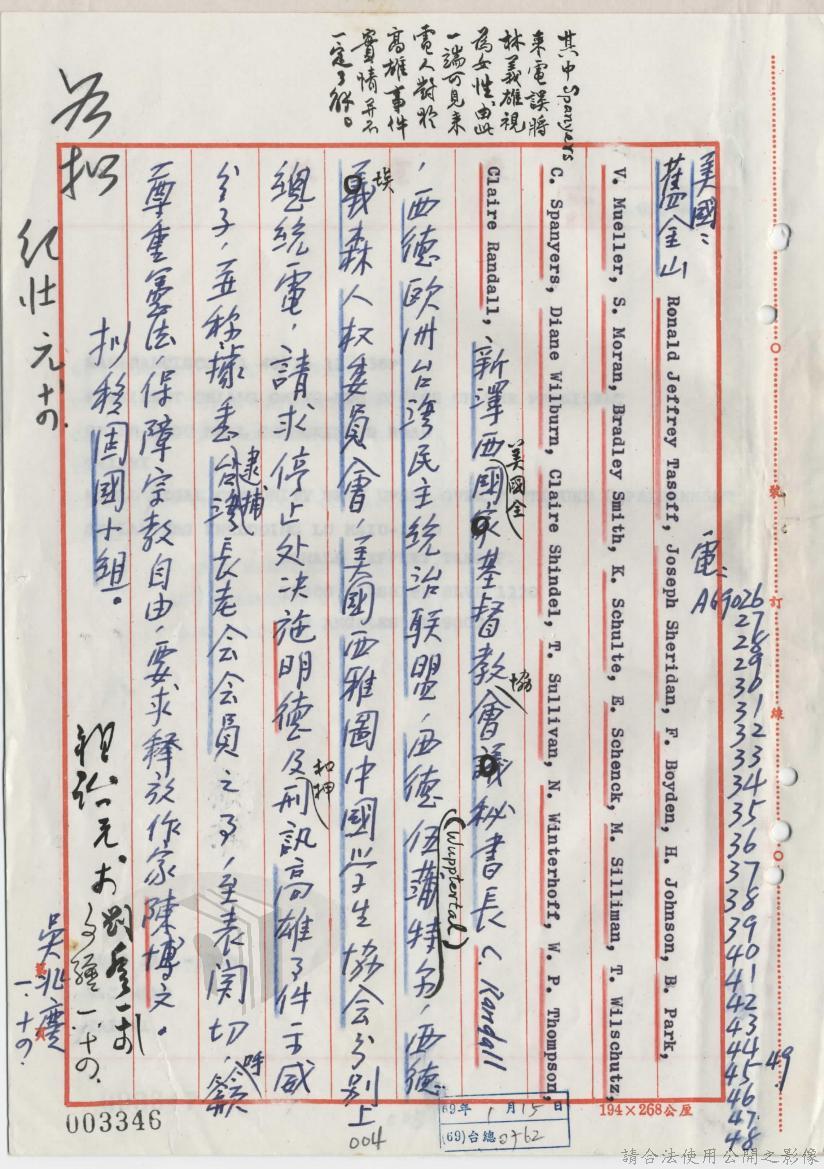 其中Spanyers
來電誤將
林義雄視
為女性,由此
一端可見來
電人對於
高雄事件
實情並不
一定了解。
美國:
舊金山 Ronald Jeffrey Tasoff, Joseph Sheridan, F. Boyden, H. Johnson, B. Park,
V. Mueller, S. Moran, Bradley Smith, K. Schulte, E. Schenck, M. Silliman, T. Wilschutz,
C. Spanyers, Diane Wilburn, Claire Shindel, T. Sullivan, N. Winterhoff, W. P. Thompson,
Claire Randall, 新澤西國家基督教會議秘書長 C. Randall
美國全
協
,西德歐洲台灣民主統治联盟,西德伍蒲特尔,西德
(Wuppertal)
義森人权委員會,美國西雅圖中國学生協会分别上
埃
總統電,請求停止处决施明德及刑訊高雄事件示威
扣押
分子,並称據悉台灣長老会会員之事,至表関切,籲
逮捕
呼
尊重憲法,保障宗教自由,要求釋放作家陳博文。
拟移固國小組。
電:
A69026
27
28
29
30
31
32
33
34
35
36
37
38
39
40
41
42
43
44
45
46
47
48
49
號
訂
線
紀壯 元十四.
吳兆慶
一.十四.
003346
004
69年 1月15日
(69)台總0762
194×268公厘
請合法使用公開之影像